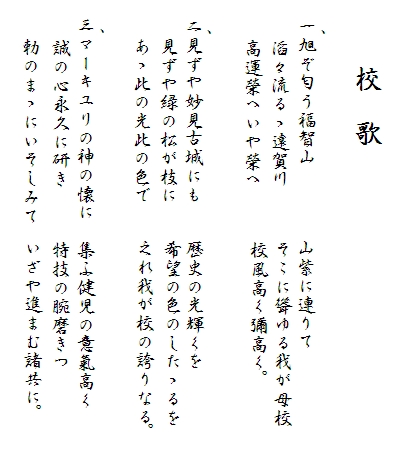 校歌
一、旭ぞ匂う福智山　山紫に連りて
滔々流るゝ遠賀川　そこに聳ゆる我が母校
高運榮へいや榮へ　校風高く彌高く。
二、見ずや妙見古城にも　歴史の光輝くを
見ずや緑の松が枝に　希望の色のしたゝるを
あゝ此の光此の色で　之れ我が校の誇りなる。
三、マーキユリの神の懐に　集ふ健児の意氣高く
誠の心永久に研き　特技の腕磨きつ
勅のまゝにいそしみて　いざや進まむ諸共に。